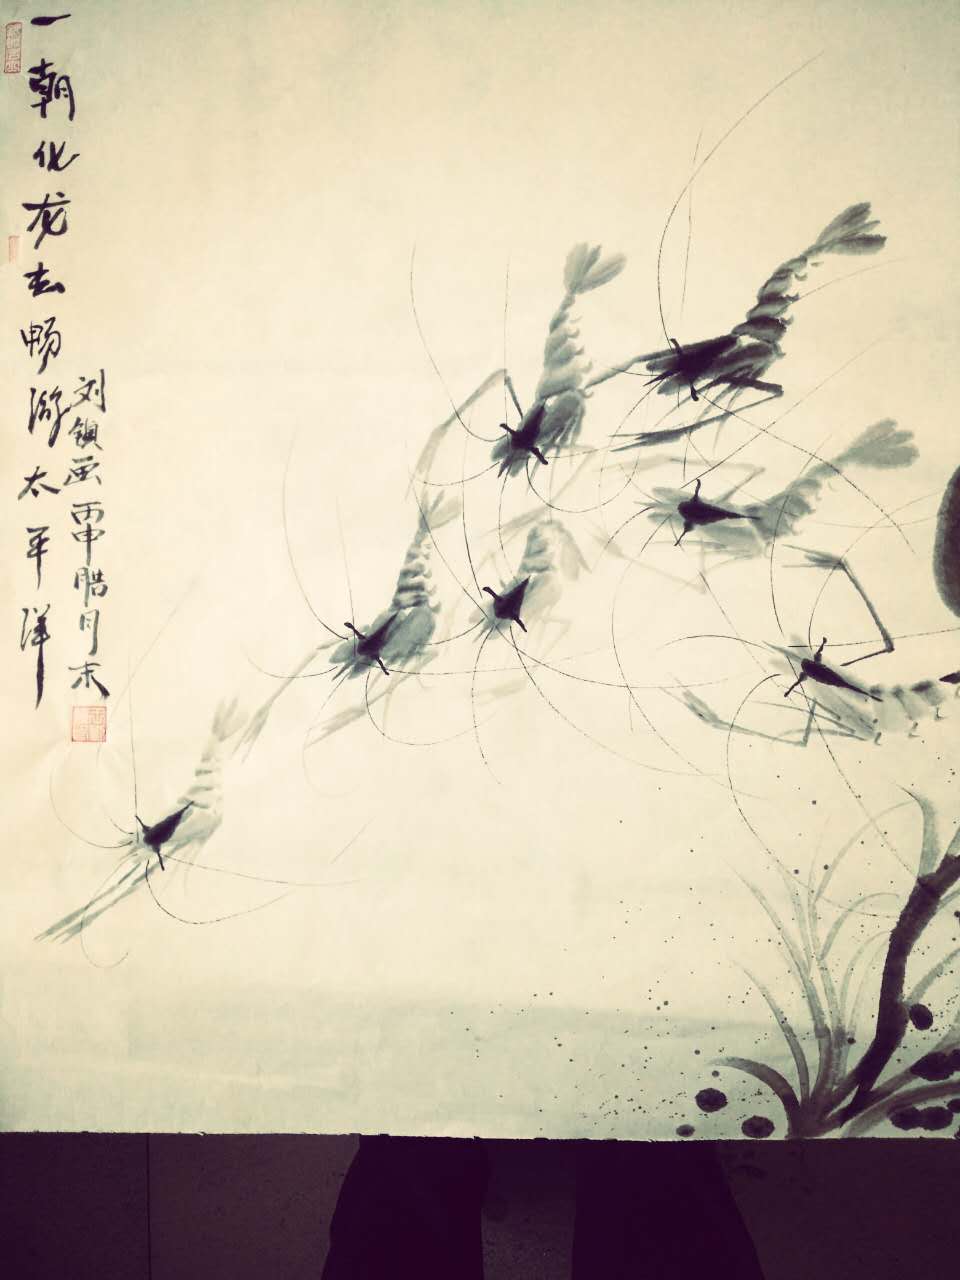 一朝化龙去畅游太平洋
刘钡画丙申腊月末